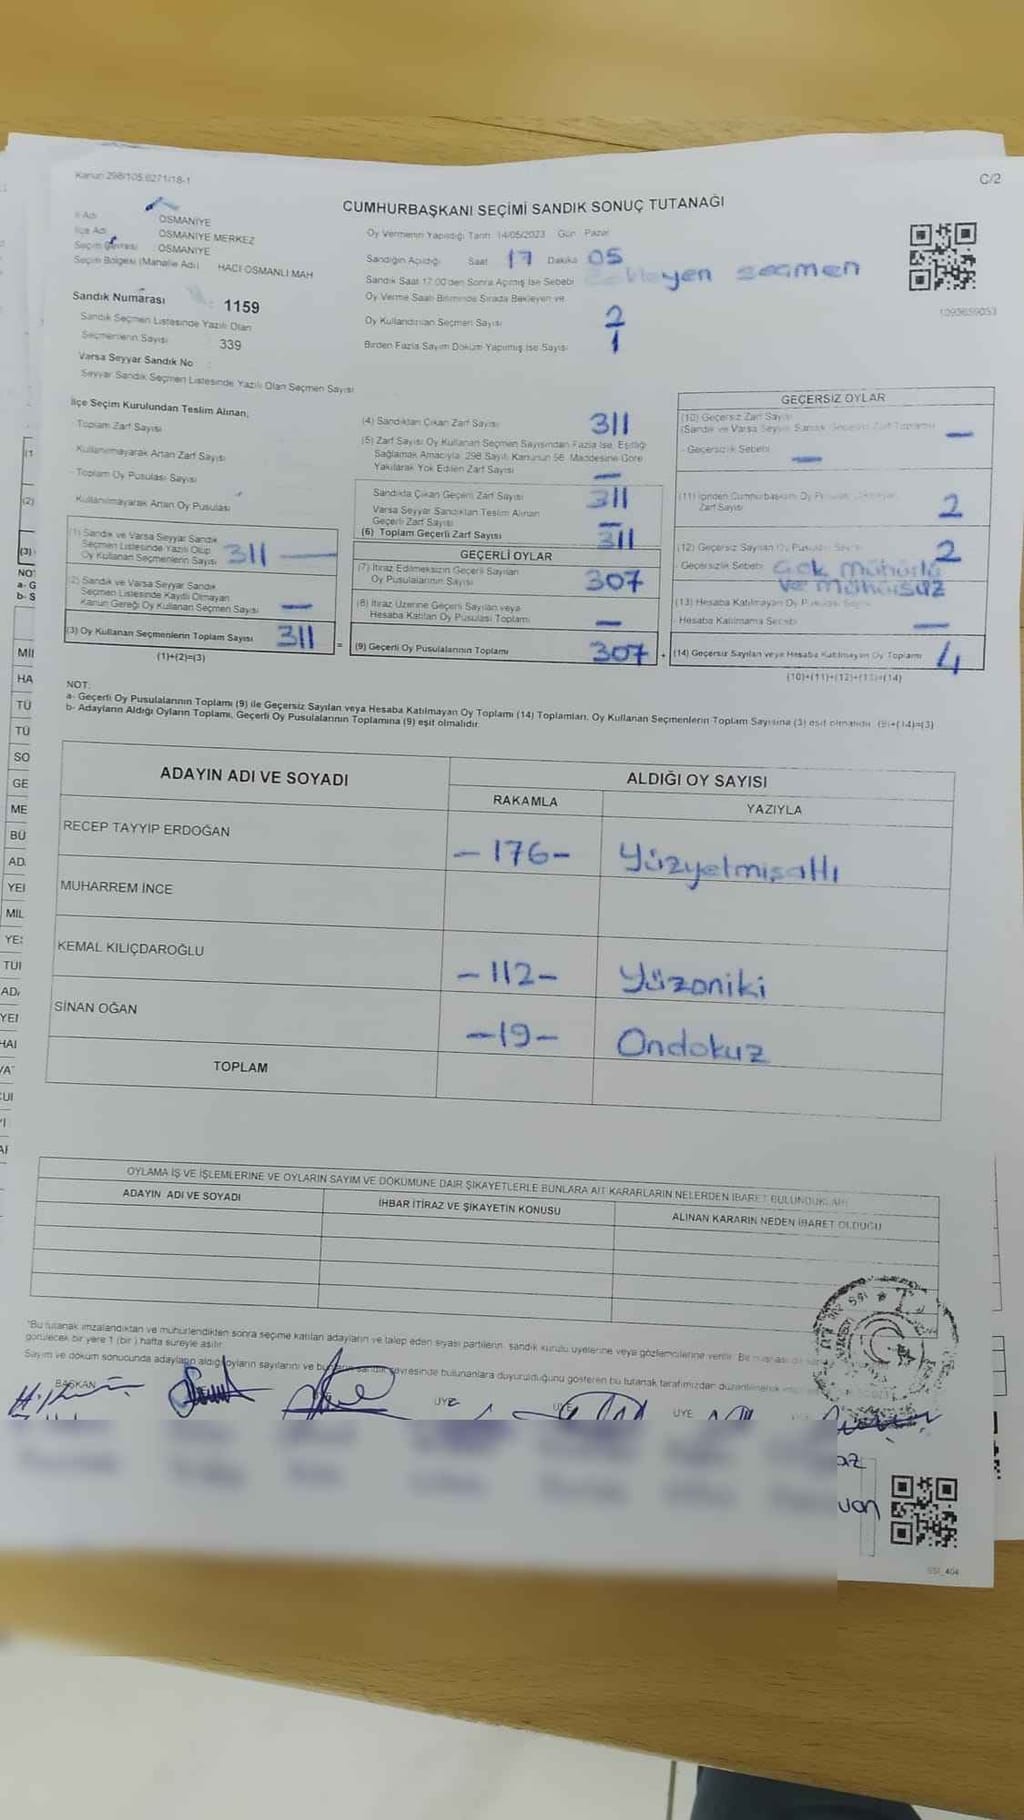 Kanun 298/105 6271/18-1
C/2
CUMHURBAŞKANI SEÇİMİ SANDIK SONUÇ TUTANAĞI
İl Adı OSMANİYE
İlçe Adı OSMANİYE MERKEZ
Seçim Çevresi OSMANİYE
Seçim Bölgesi (Mahalle Adı) HACI OSMANLI MAH
Sandık Numarası 1159
Sandık Seçmen Listesinde Yazılı Olan
Seçmenlerin Sayısı 339
Varsa Seyyar Sandık No
Seyyar Sandık Seçmen Listesinde Yazılı Olan Seçmen Sayısı
Oy Vermenin Yapıldığı Tarih 14/05/2023 Gün Pazar
Sandığın Açıldığı Saat 17 Dakika 05
Sandık Saat 17:00'den Sonra Açılmış İse Sebebi Bekleyen seçmen
Oy Verme Saati Bitiminde Sırada Bekleyen ve
Oy Kullandırılan Seçmen Sayısı 2
Birden Fazla Sayım Döküm Yapılmış İse Sayısı 1
1093659053
İlçe Seçim Kurulundan Teslim Alınan;
Toplam Zarf Sayısı
Kullanılmayarak Artan Zarf Sayısı
Toplam Oy Pusulası Sayısı
Kullanılmayarak Artan Oy Pusulası
(1) Sandık ve Varsa Seyyar Sandık
Seçmen Listesinde Yazılı Olup
Oy Kullanan Seçmenlerin Sayısı 311
(2) Sandık ve Varsa Seyyar Sandık
Seçmen Listesinde Kayıtlı Olmayan
Kanun Gereği Oy Kullanan Seçmen Sayısı —
(3) Oy Kullanan Seçmenlerin Toplam Sayısı 311
(1)+(2)=(3)
(4) Sandıktan Çıkan Zarf Sayısı 311
(5) Zarf Sayısı Oy Kullanan Seçmen Sayısından Fazla İse, Eşitliği
Sağlamak Amacıyla 298 Sayılı Kanunun 98. Maddesine Göre
Yakılarak Yok Edilen Zarf Sayısı —
Sandıkta Çıkan Geçerli Zarf Sayısı 311
Varsa Seyyar Sandıktan Teslim Alınan
Geçerli Zarf Sayısı —
(6) Toplam Geçerli Zarf Sayısı 311
GEÇERLİ OYLAR
(7) İtiraz Edilmeksizin Geçerli Sayılan
Oy Pusulalarının Sayısı 307
(8) İtiraz Üzerine Geçerli Sayılan veya
Hesaba Katılan Oy Pusulası Toplamı —
= (9) Geçerli Oy Pusulalarının Toplamı 307
GEÇERSİZ OYLAR
(10) Geçersiz Zarf Sayısı
(Sandık ve Varsa Seyyar Sandık Zarf Toplamı) —
- Geçersizlik Sebebi —
(11) İçinden Cumhurbaşkanı Oy Pusulası Çıkmayan
Zarf Sayısı 2
(12) Geçersiz Sayılan Oy Pusula Sayısı 2
- Geçersizlik Sebebi Çok mühürlü
ve mühürsüz
(13) Hesaba Katılmayan Oy Pusula Sayısı
- Hesaba Katılmama Sebebi —
+ (14) Geçersiz Sayılan veya Hesaba Katılmayan Oy Toplamı 4
(10)+(11)+(12)+(13)=(14)
NOT:
a- Geçerli Oy Pusulalarının Toplamı (9) ile Geçersiz Sayılan veya Hesaba Katılmayan Oy Toplamı (14) Toplamları, Oy Kullanan Seçmenlerin Toplam Sayısına (3) eşit olmalıdır. (9)+(14)=(3)
b- Adayların Aldığı Oyların Toplamı, Geçerli Oy Pusulalarının Toplamına (9) eşit olmalıdır.
ADAYIN ADI VE SOYADI ALDIĞI OY SAYISI
RAKAMLA YAZIYLA
RECEP TAYYİP ERDOĞAN —176— Yüzyetmişaltı
MUHARREM İNCE
KEMAL KILIÇDAROĞLU —112— Yüzoniki
SİNAN OĞAN —19— Ondokuz
TOPLAM
OYLAMA İŞ VE İŞLEMLERİNE VE OYLARIN SAYIM VE DÖKÜMÜNE DAİR ŞİKAYETLERLE BUNLARA AİT KARARLARIN NELERDEN İBARET BULUNDUKLARI
ADAYIN ADI VE SOYADI İHBAR İTİRAZ VE ŞİKAYETİN KONUSU ALINAN KARARIN NEDEN İBARET OLDUĞU
*Bu tutanak imzalandıktan ve mühürlendikten sonra seçime katılan adayların ve talep eden siyasi partilerin, sandık kurulu üyelerine veya gözlemcilerine verilir. Bir
görülecek bir yere 1 (bir) hafta süreyle asılır.
Sayım ve döküm sonucunda adayların aldığı oyların sayılarını ve bunların sandık çevresinde bulunanlara duyurulduğunu gösteren bu tutanak tarafımızdan düzenlenerek
BAŞKAN ÜYE ÜYE ÜYE
az
van
SSI_404